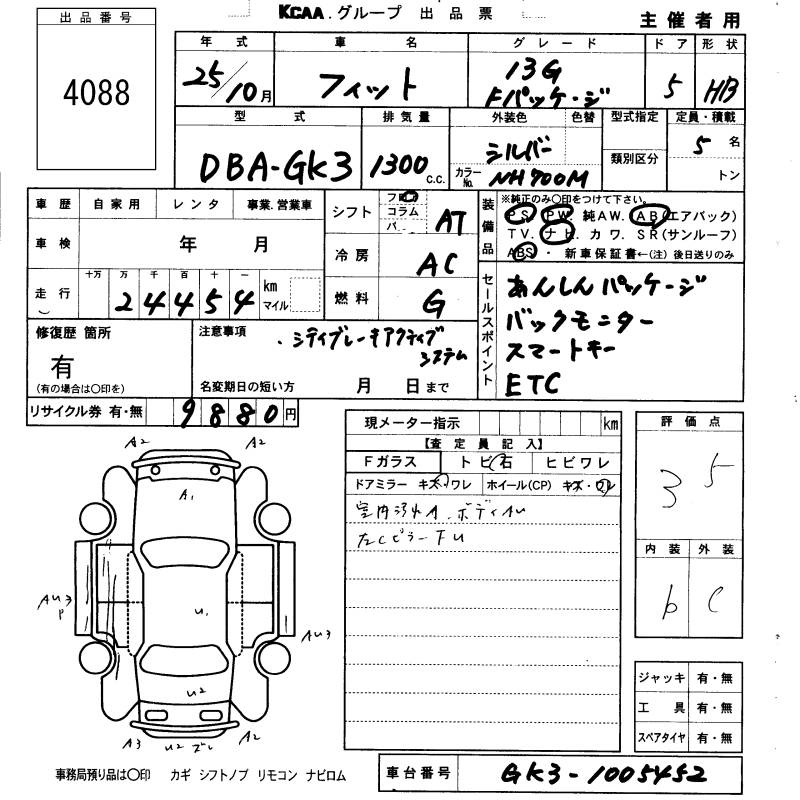 KCAA.グループ 出品票
主催者用
出品番号
4088
年式 車名 グレード ドア 形状
25/10月 フィット 13G Fパッケージ 5 HB
型式 排気量 外装色 色替 型式指定 定員・積載
DBA-GK3 1300 C.C. シルバー 5名
カラーNo. NH700M 類別区分 トン
車歴 自家用 レンタ 事業.営業車
車検 年 月
走行 十万 万 千 百 十 一
24454 km マイル
シフト フロア コラム AT
冷房 AC
燃料 G
装備品 ※純正のみ○印をつけて下さい。
PS. PW. 純AW. AB(エアバック)
TV. ナビ. カワ. SR(サンルーフ)
ABS ・ 新車保証書←(注) 後日送りのみ
セールスポイント
あんしんパッケージ
バックモニター
スマートキー
ETC
修復歴 箇所
有
(有の場合は○印を)
注意事項 ・シティブレーキアクティブ
システム
名変期日の短い方 月 日まで
リサイクル券 有・無 9880円
現メーター指示 km
【査定員記入】
Fガラス トビ石 ヒビワレ
ドアミラー キズ・ワレ ホイール(CP) キズ・ワレ
室内汚れA.ボディAU
左CピラーFU
評価点
3 5
内装 外装
b C
ジャッキ 有・無
工具 有・無
スペアタイヤ 有・無
A2 A2
A1
AU3
P
U1
AU3
U2
A3 U2 ズレ A2
事務局預り品は○印 カギ シフトノブ リモコン ナビロム
車台番号 GK3-1005452